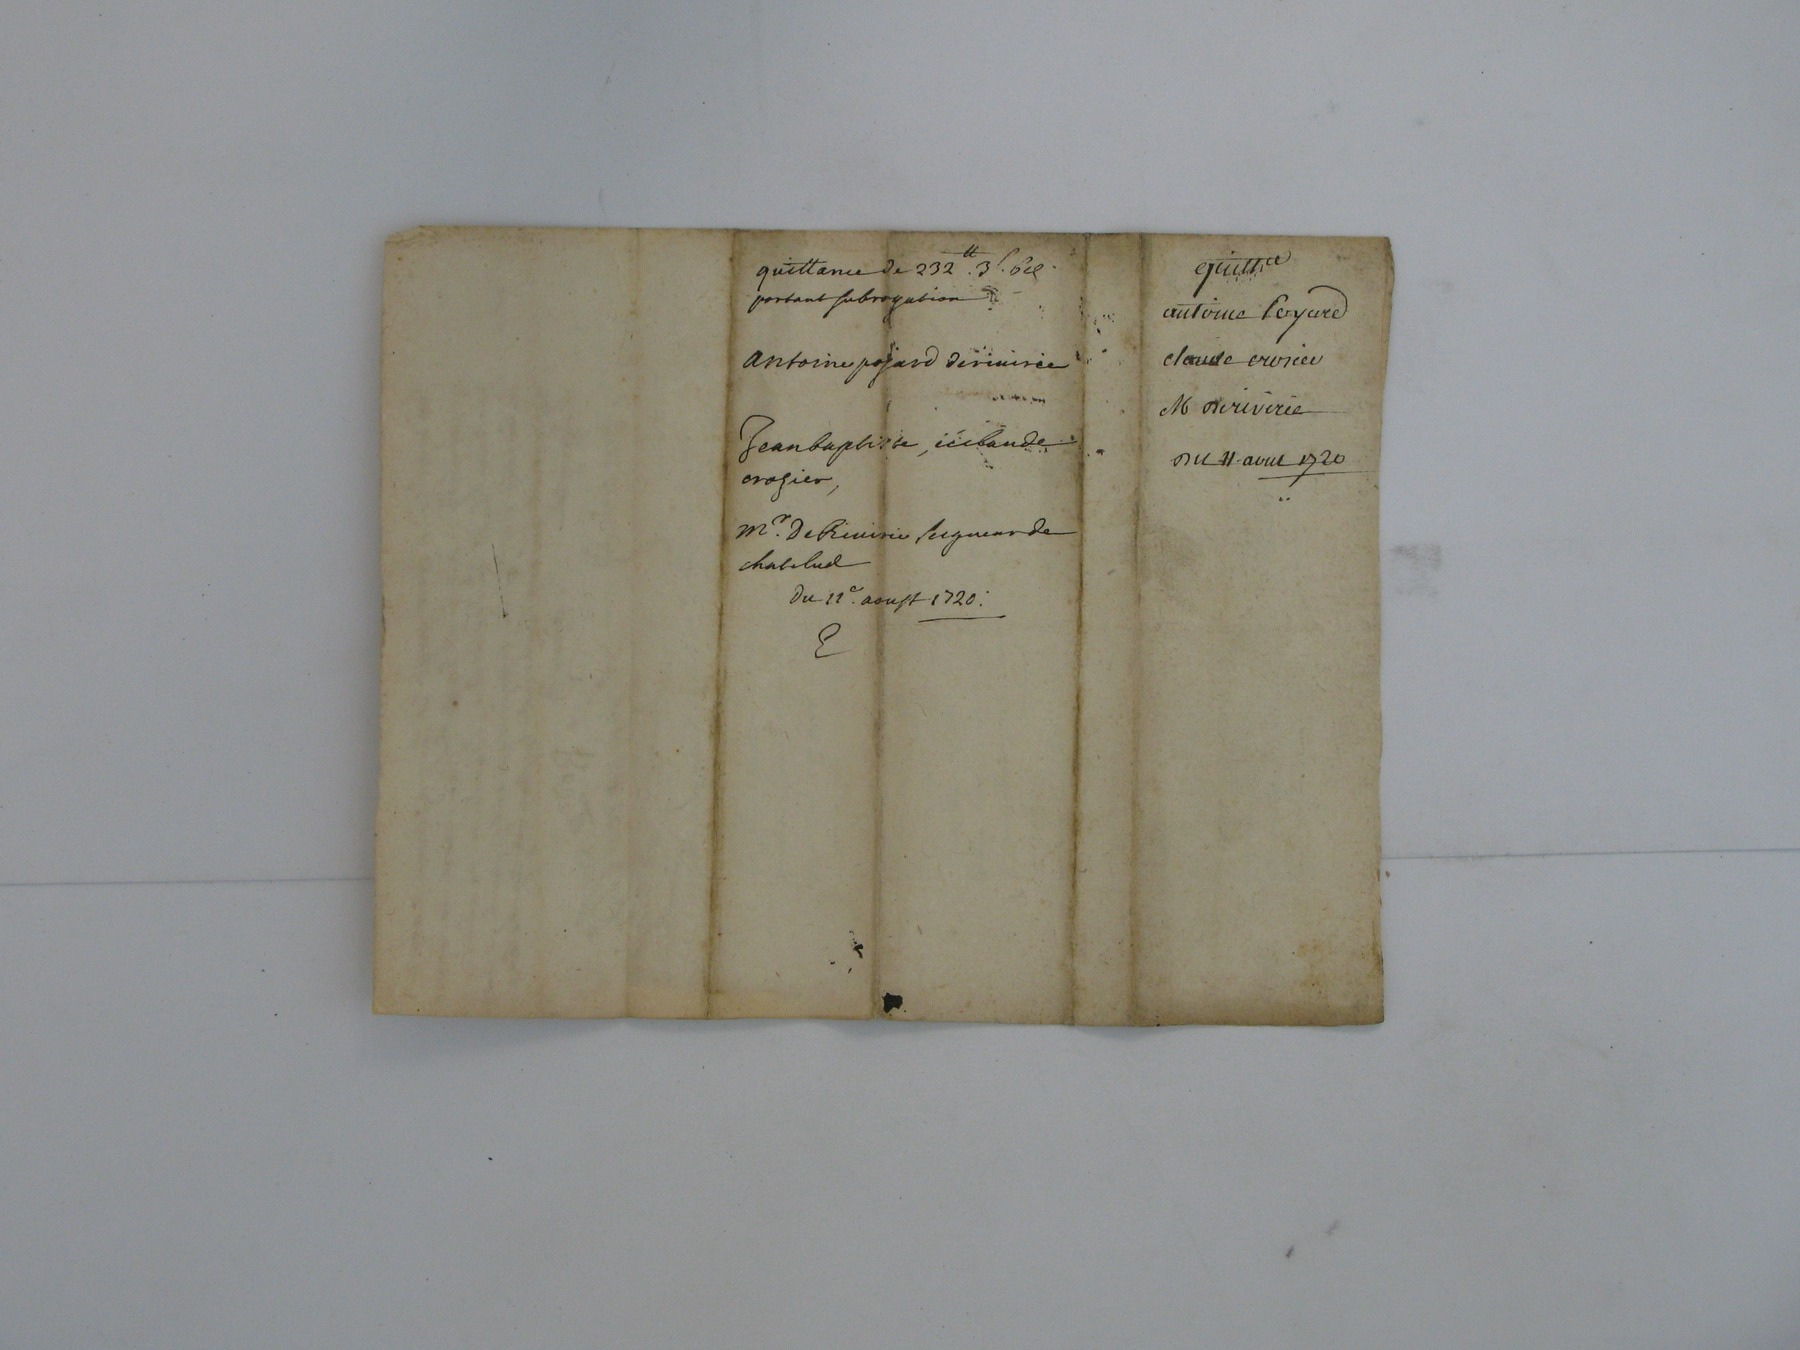 quittance de 232 ₶ 3 s. 6 d.
portant subrogation
Antoine pojard de riuirie
Jean baptiste, et claude
crozier,
Mr. De Riuirie seigneur de
chatelud
du 11e. aoust 1720.
quittce
antoine Poyard
claude crosier
M de riverie
du 11 aout 1720